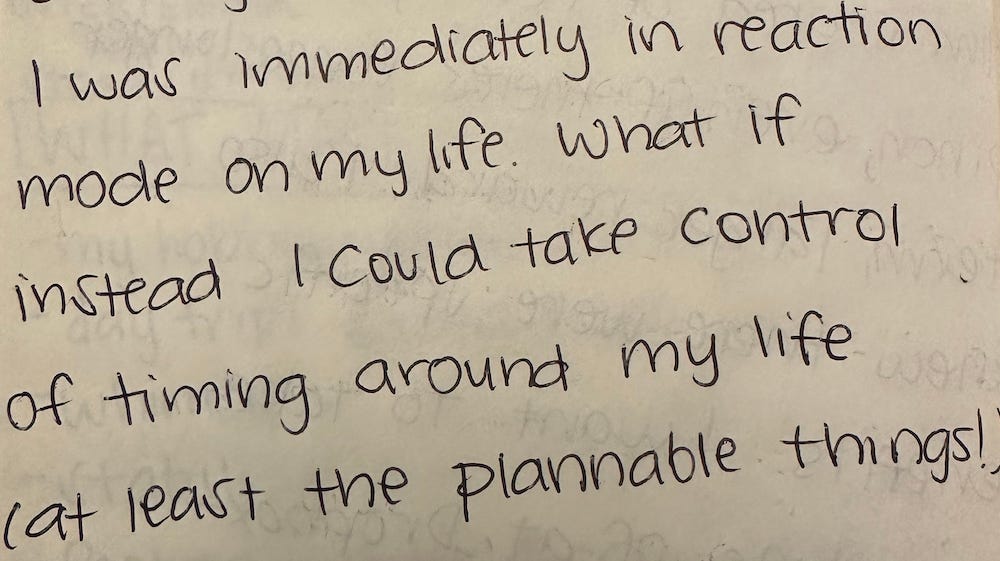 I was immediately in reaction
mode on my life. What if
instead I could take control
of timing around my life
(at least the plannable things!)